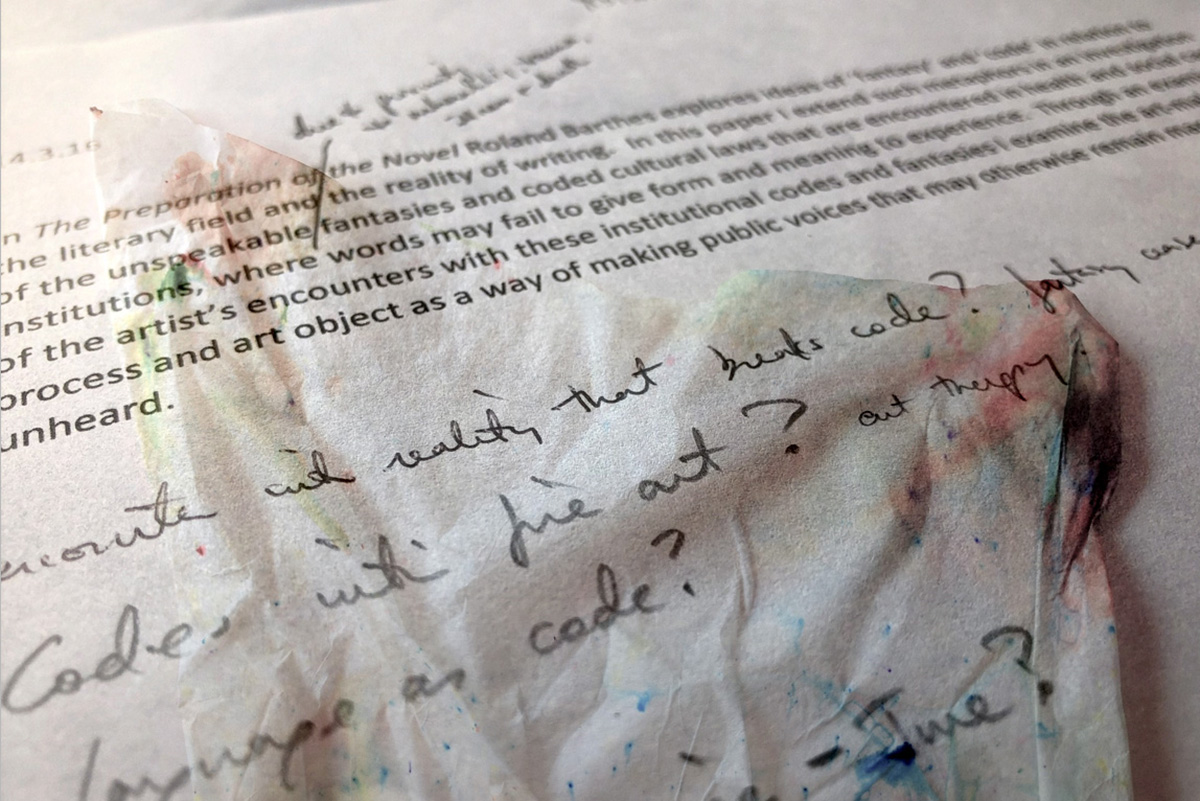 4.3.16
n The Preparation of the Novel Roland Barthes explores ideas of 'fantasy' and 'code' in relation to
the literary field and the reality of writing. In this paper I extend such metaphors in an
of the unspeakable fantasies and coded cultural laws that are encountered in health and social
nstitutions, where words may fail to give form and meaning to experience. Through an
of the artist's encounters with these institutional codes and fantasies I examine the art-
process and art object as a way of making public voices that may otherwise remain
unheard.
with reality that breaks code? fantasy
Codes within fine art? art therapy.
language as code?
- Time?